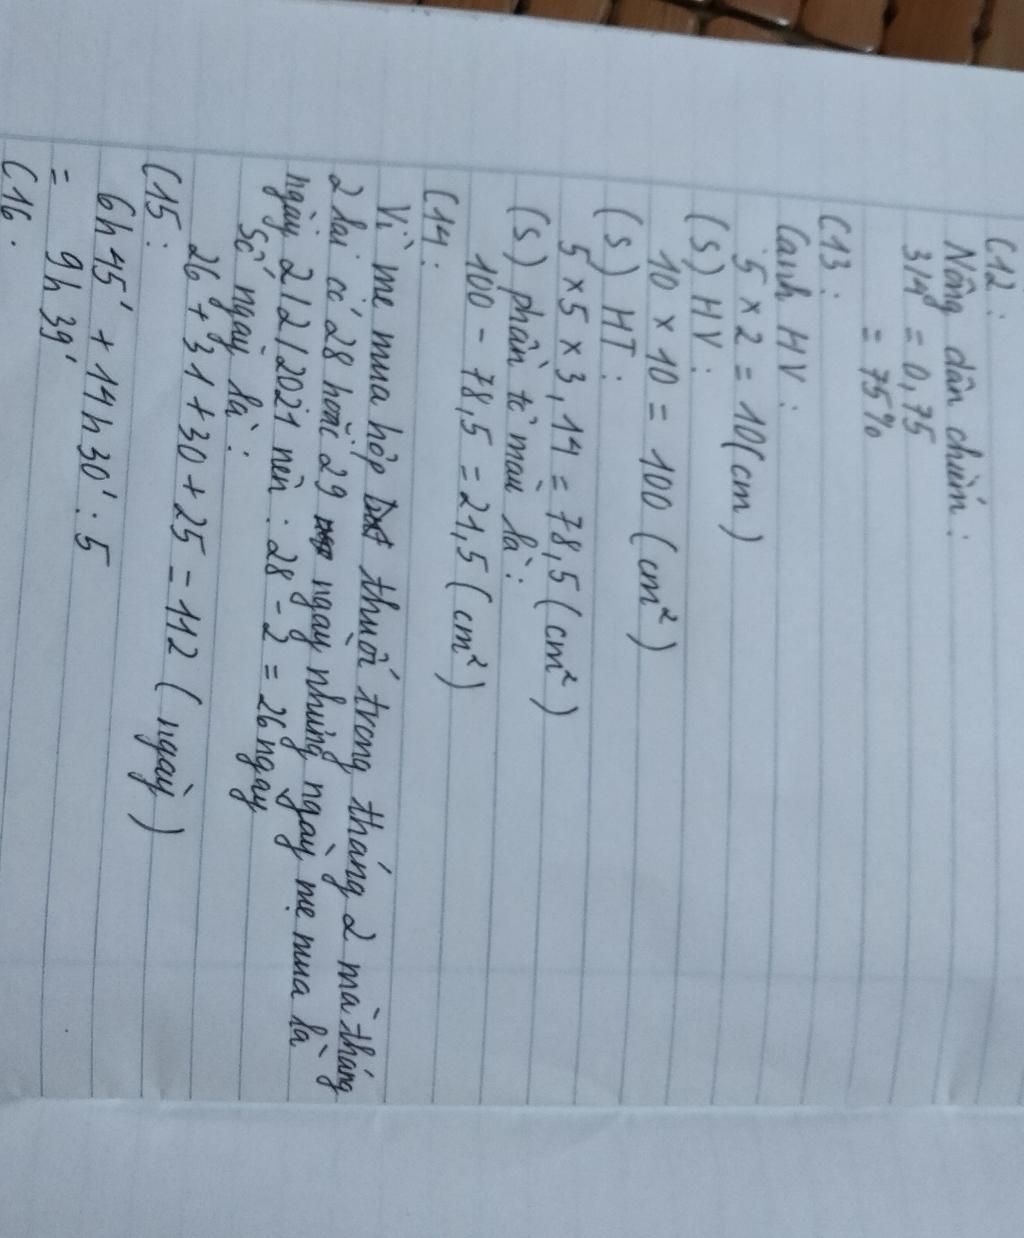 C12:
Nông dân chiếm:
3/4 = 0,75
= 75%
C13:
Cạnh HV:
5 × 2 = 10 (cm)
(S) HV:
10 × 10 = 100 (cm²)
(S) HT:
5 × 5 × 3,14 = 78,5 (cm²)
(S) phần tô màu là:
100 - 78,5 = 21,5 (cm²)
C14:
Vì mẹ mua hộp thuốc trong tháng 2 mà tháng
2 lại có 28 hoặc 29 ngày nhưng ngày mẹ mua là
ngày 2/2/2021 nên: 28 - 2 = 26 ngày
Số ngày là:
26 + 31 + 30 + 25 = 112 (ngày)
C15:
6h45' + 14h30' : 5
= 9h39'
C16: